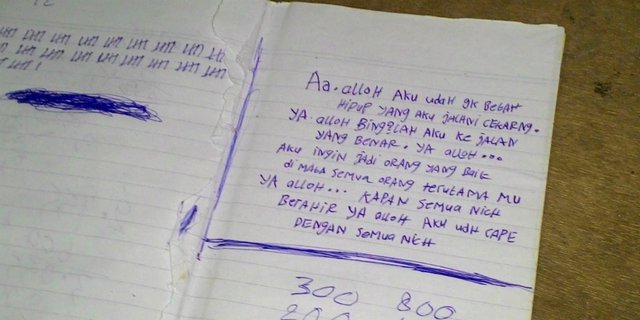 Aa. alloH AKU udaH gk BetaH
HIDUP YANG AKU JALANI CEKARNG.
YA alloH BINGBLAH AKU KE JALAN
YANG BENAR. YA alloH...
AKU INGIN JADI ORANG YANG BAIK
DI MATA SEMUA ORANG TERUTAMA MU
YA alloH... KAPAN SEMUA NICH
BERAHIR YA alloH AKU UDH CAPE
DENGAN SEMUA NICH
300 800